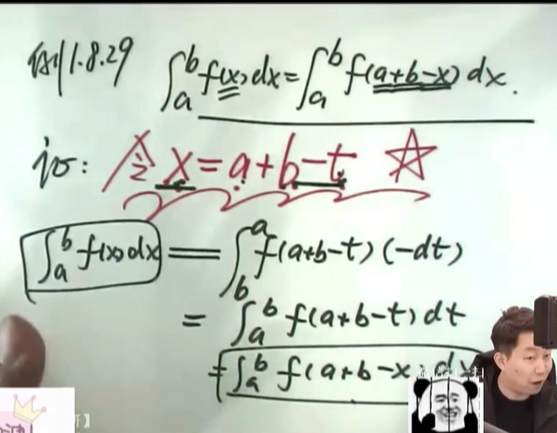 例1.8.29 ∫_a^b f(x)dx=∫_a^b f(a+b-x)dx.
证: 令 x=a+b-t ☆
∫_a^b f(x)dx = ∫_b^a f(a+b-t)(-dt)
= ∫_a^b f(a+b-t)dt
= ∫_a^b f(a+b-x)d